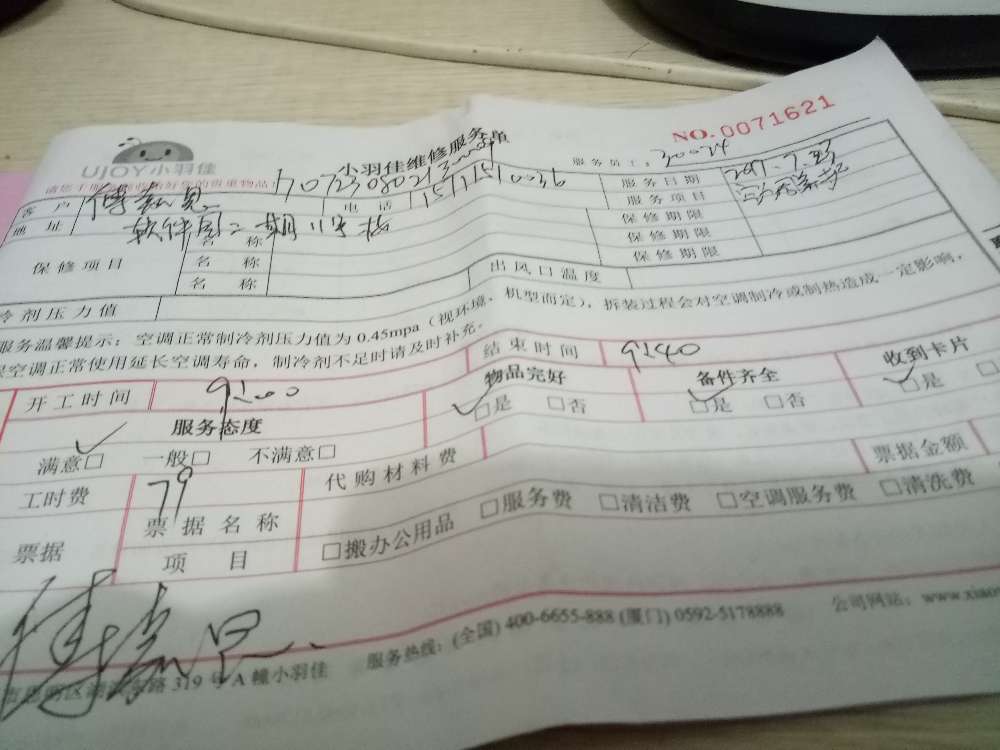 UJOY小羽佳
小羽佳维修服务单
NO.0071621
服务员工: 30074
客户
电话 15711510036
服务日期
地址 软件园二期11号楼
服务项目
保修期限
保修期限
保修期限
保修项目
名称
名称
名称
冷剂压力值
出风口温度
服务温馨提示: 空调正常制冷剂压力值为 0.45mpa (视环境、机型而定), 拆装过程会对空调制冷或制热造成一定影响,
保空调正常使用延长空调寿命, 制冷剂不足时请及时补充。
开工时间 9:00
结束时间 9:40
服务态度
物品完好
备件齐全
收到卡片
满意□ 一般□ 不满意□
□是 □否
□是 □否
□是
工时费 79
代购材料费
票据金额
票据
票据名称
项目
□搬办公用品 □服务费 □清洁费 □空调服务费 □清洗费
路 319 号 A 幢小羽佳 服务热线: (全国) 400-6655-888 (厦门) 0592-5178888 公司网站: www.xiao